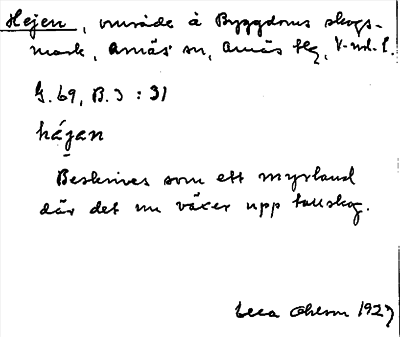 Hejen, område å Byggdoms skogs-
mark, Anäs sn, Anäs hg, V-md. L.
G. 69, B. J : 31
hájan
Beskrives som ett myrland
där det nu växer upp tallskog.
Ohlson 1927